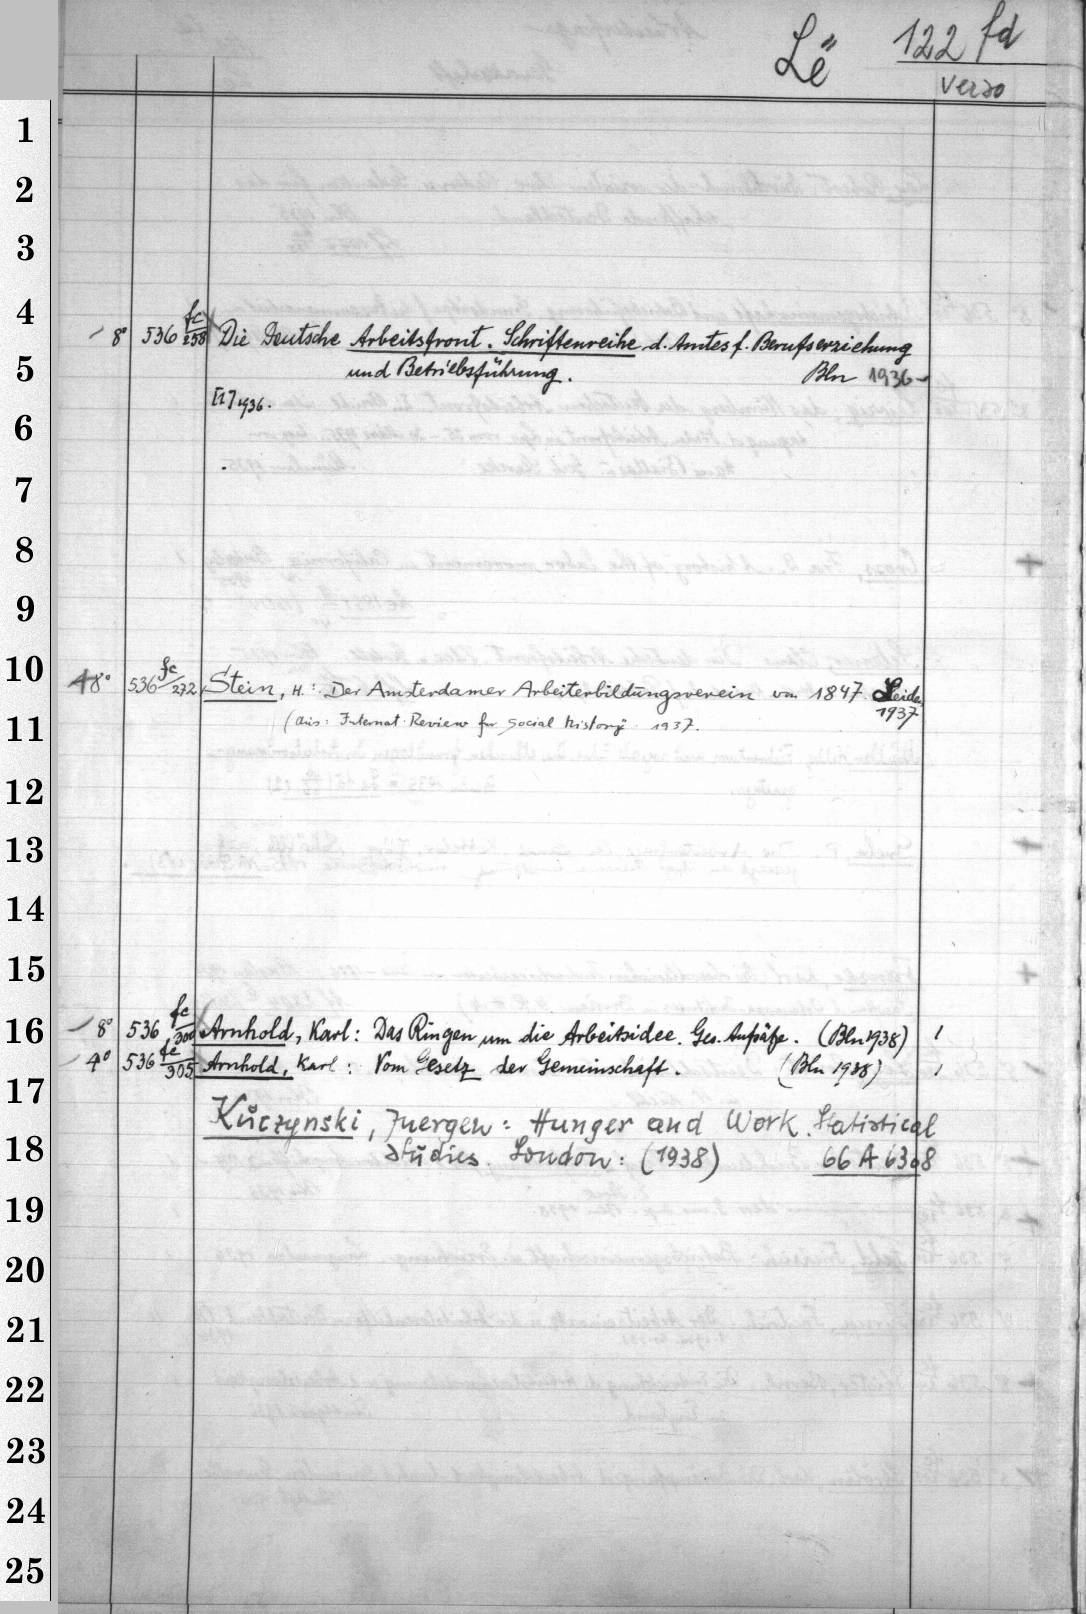 Lë 122 fd
verso
1
2
3
4
8° 536 fc/258 Die Deutsche Arbeitsfront. Schriftenreihe d. Amtes f. Berufserziehung
5
und Betriebsführung. Bln 1936-
[1] 1936.
6
7
8
9
10
8° 536 fc/272 Stein, H.: Der Amsterdamer Arbeiterbildungsverein von 1847. Leiden
1937
11
(Aus: Internat. Review for Social History 1937.
12
13
14
15
16
8° 536 fc/300 Arnhold, Karl: Das Ringen um die Arbeitsidee. Ges. Aufsätze. (Bln 1938) 1
4° 536 fc/305 Arnhold, Karl: Vom Gesetz der Gemeinschaft. (Bln 1938) 1
17
Kuczynski, Juergen: Hunger and Work. Statistical
18
Studies. London: (1938) 66 A 6308
19
20
21
22
23
24
25